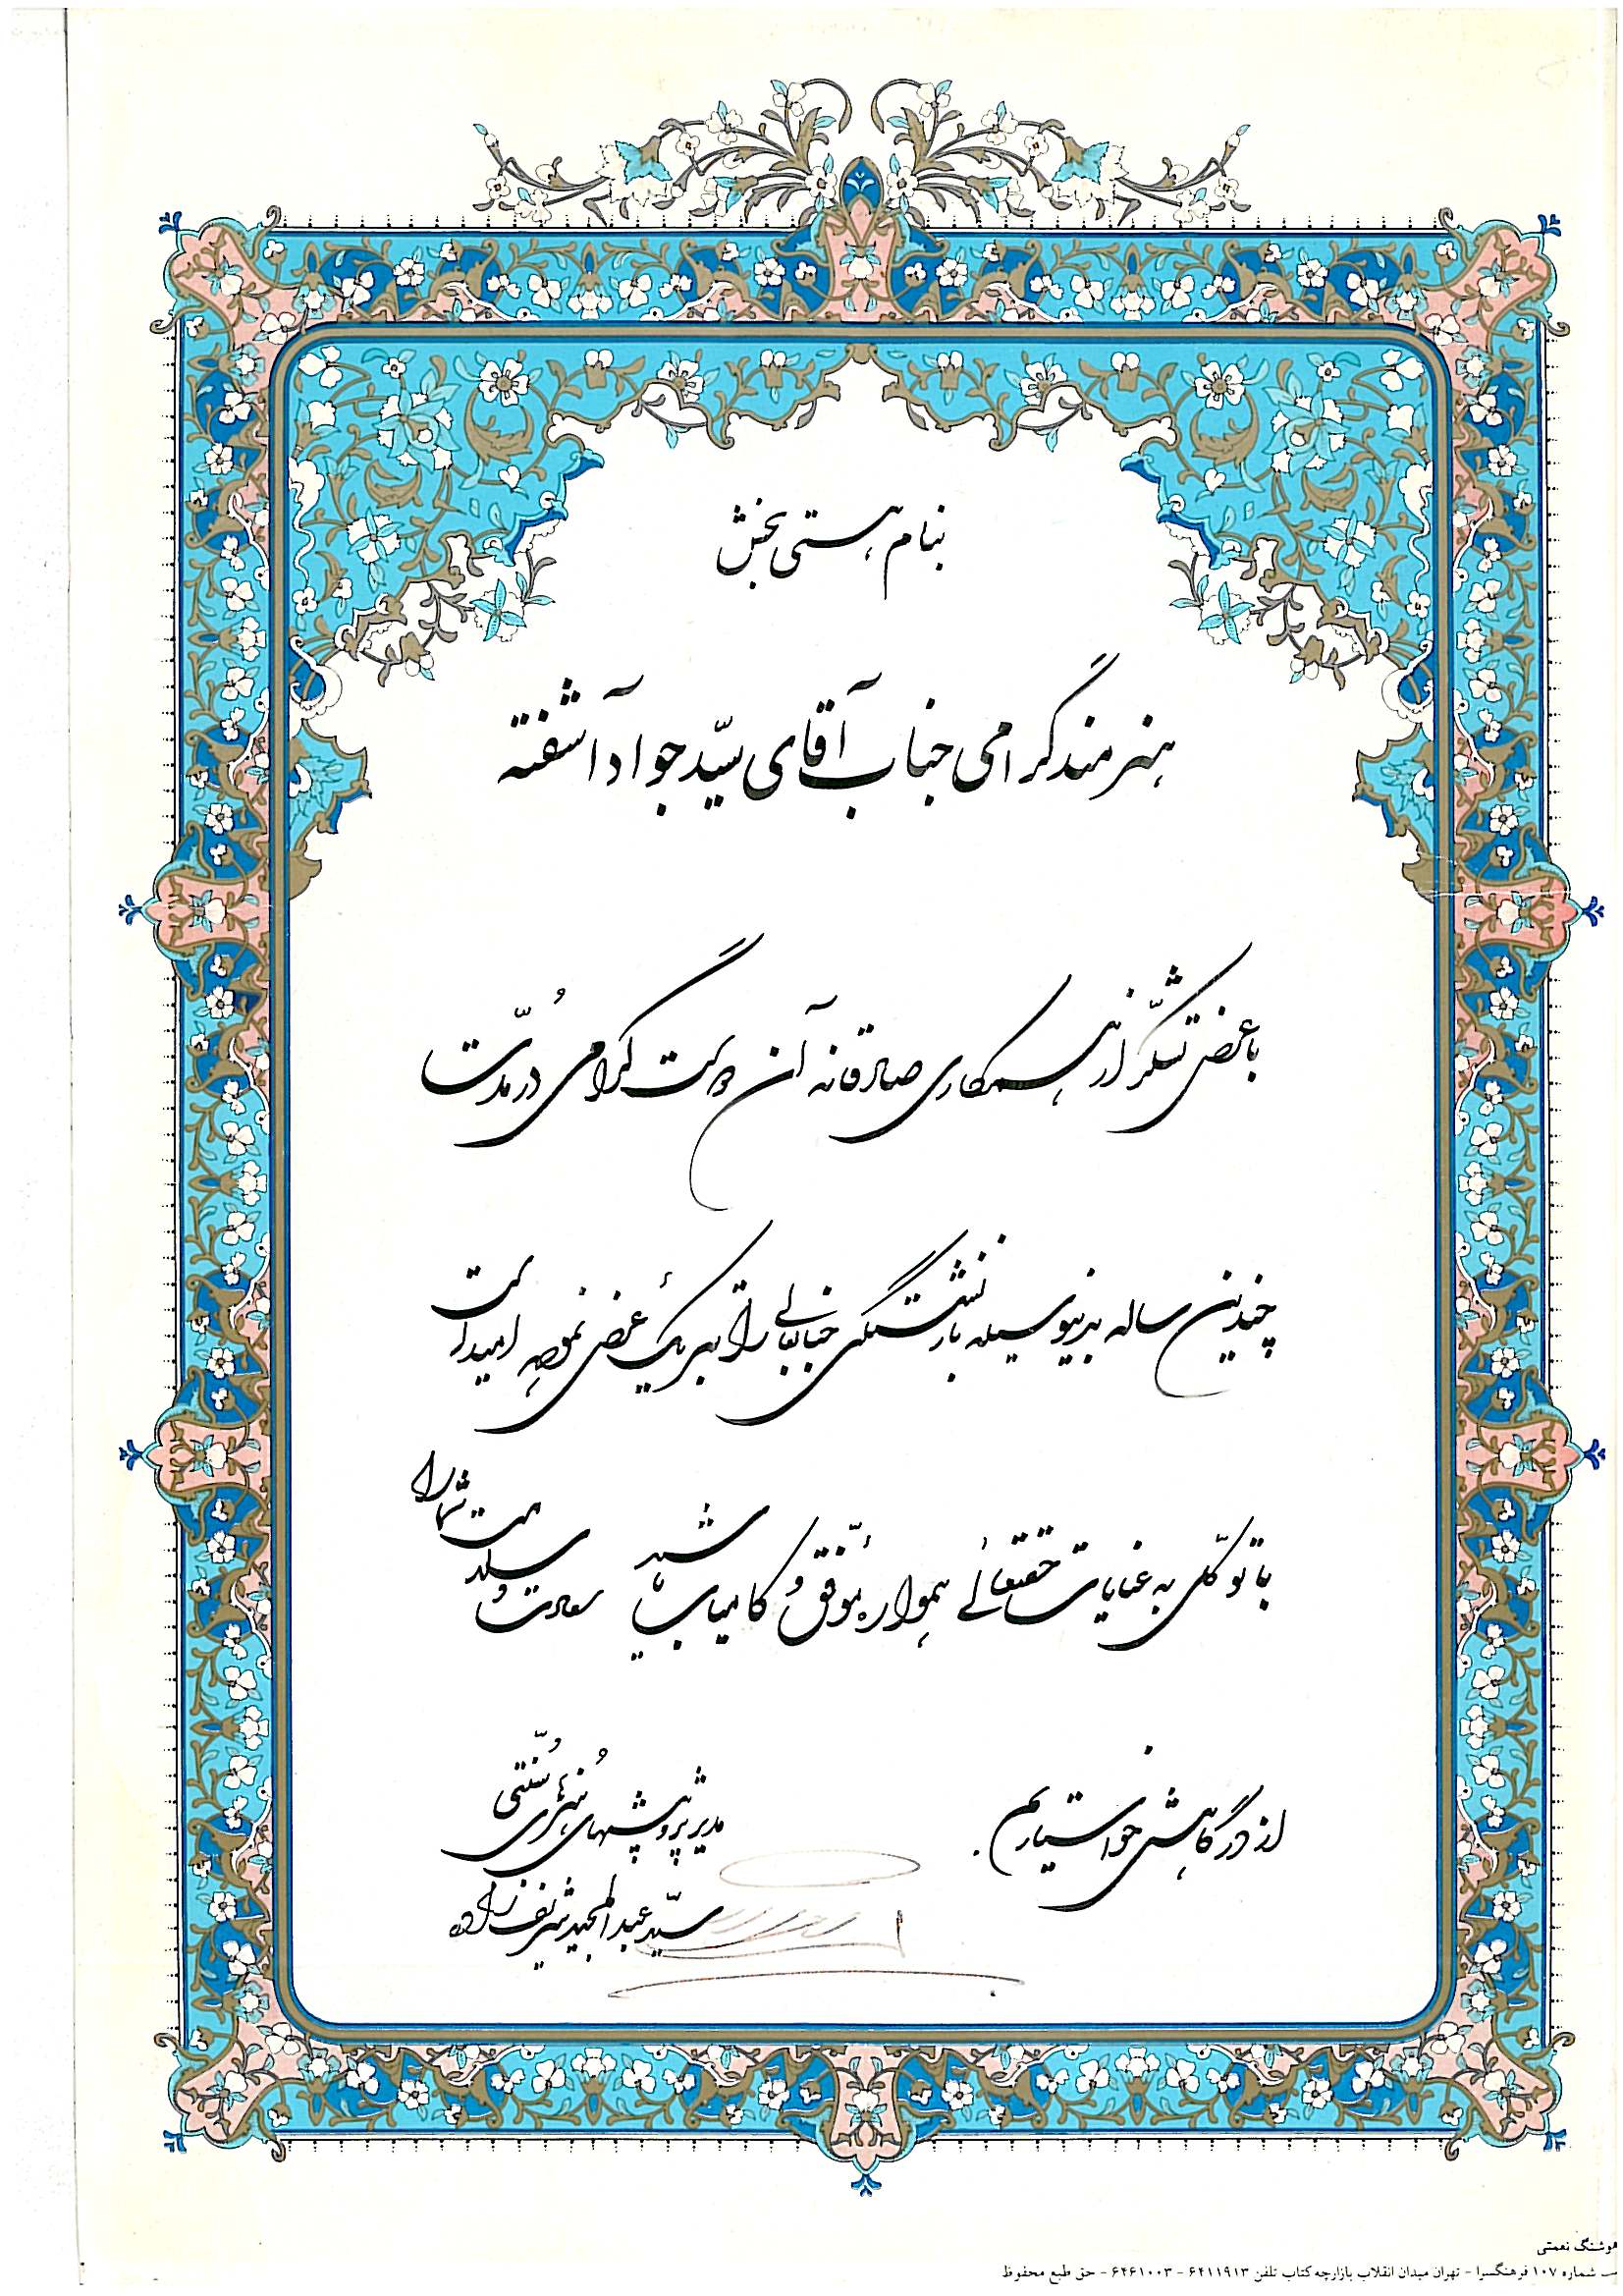 بنام هستی بخش
هنرمند گرامی جناب آقای سیّد جواد آشفته
با عرض تشکّر از همکاری صادقانه آن دوست گرامی در مُدّت
چندین ساله بدینوسیله بازنشستگی جنابعالی را تبریک عرض نموده امید است
با توکّل به عنایات حقتعالی همواره مؤفّق و کامیاب باشید سعادت و سلامت شما را
از درگاهش خواستاریم.
مدیر پژوهشهای هُنرهای سُنّتی
سیّد عبدالمجید شریف زاده
هوشنگ نعمتی
شماره ۱۰۷ فرهنگسرا - تهران میدان انقلاب بازارچه کتاب تلفن ۶۴۱۱۹۱۳ - ۶۴۶۱۰۰۳ - حق طبع محفوظ